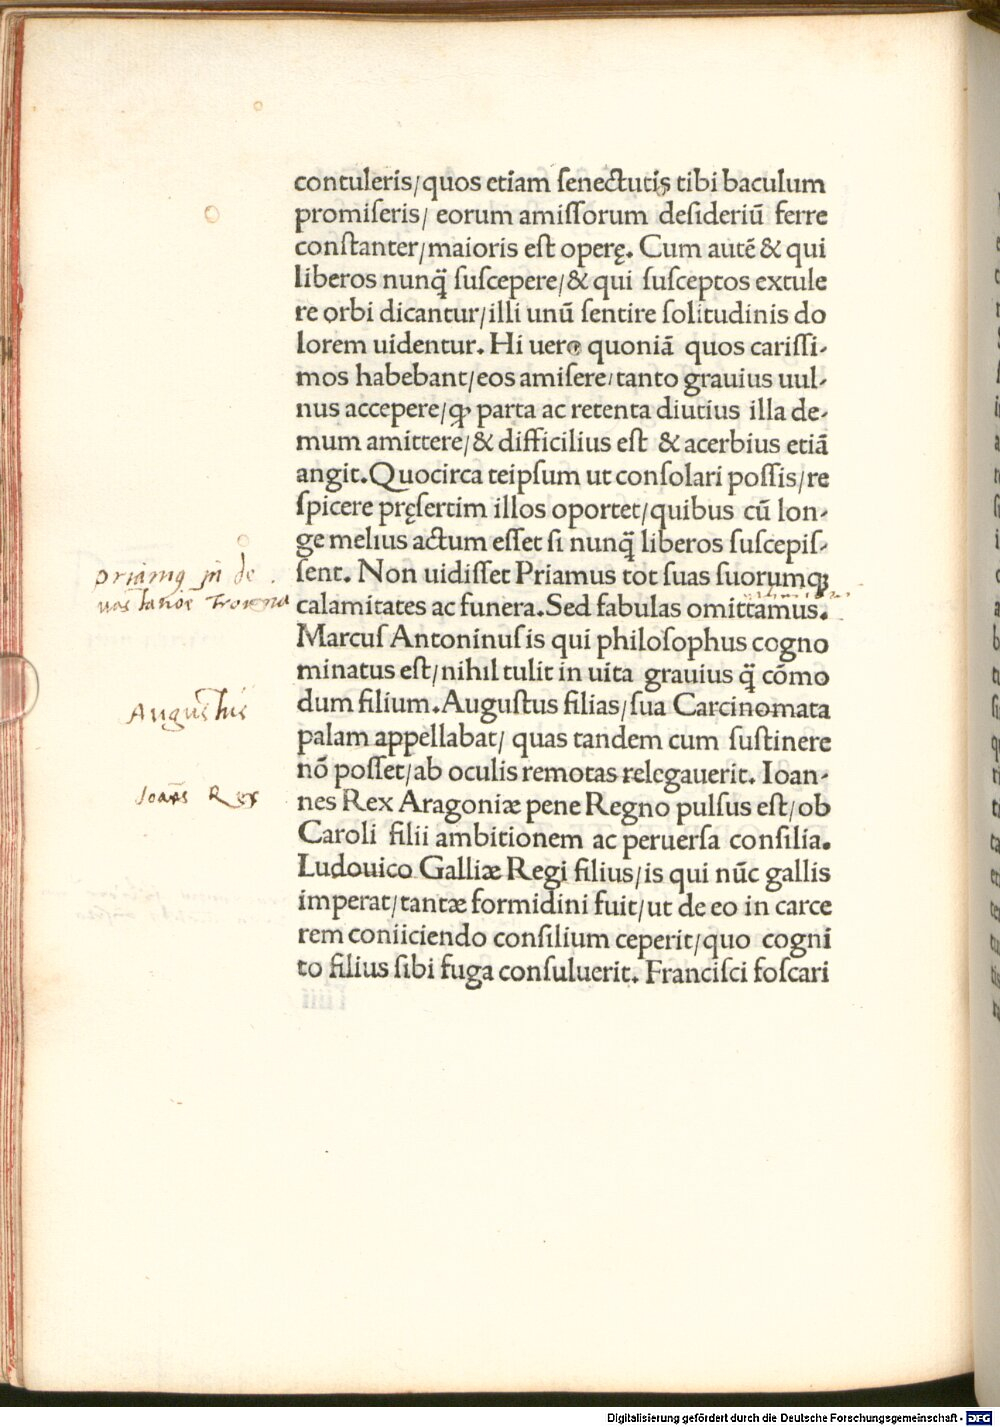 contuleris/quos etiam ſenectutis tibi baculum
promiſeris/ eorum amiſſorum deſideriũ ferre
conſtanter/maioris eſt operę. Cum autẽ & qui
liberos nunq̃ ſuſcepere/& qui ſuſceptos extule
re orbi dicantur/illi unũ ſentire ſolitudinis do
lorem uidentur. Hi uero quoniã quos cariſſi-
mos habebant/eos amiſere/tanto grauius uul-
nus accepere/ꝙ parta ac retenta diutius illa de-
mum amittere/& difficilius eſt & acerbius etiã
angit. Quocirca teipſum ut conſolari poſſis/re
ſpicere pręſertim illos oportet/quibus cũ lon-
ge melius actum eſſet ſi nunq̃ liberos ſuſcepiſ-
ſent. Non uidiſſet Priamus tot ſuas ſuorumqꝫ
calamitates ac funera. Sed fabulas omittamus.
Marcuſ Antoninuſ is qui philoſophus cogno
minatus eſt/nihil tulit in uita grauius q̃ cõmo
dum filium. Auguſtus filias/ſua Carcinomata
palam appellabat/ quas tandem cum ſuſtinere
nõ poſſet/ab oculis remotas relegauerit. Ioan-
nes Rex Aragoniæ pene Regno pulſus eſt/ob
Caroli filii ambitionem ac peruerſa conſilia.
Ludouico Galliæ Regi filius/is qui nũc gallis
imperat/tantæ formidini fuit/ut de eo in carce
rem coniiciendo conſilium ceperit/quo cogni
to filius ſibi fuga conſuluerit. Franciſci foſcari
priamꝰ in de
uastatioe Troiana
Augustus
Joañs Rex
Digitalisierung gefördert durch die Deutsche Forschungsgemeinschaft - DFG